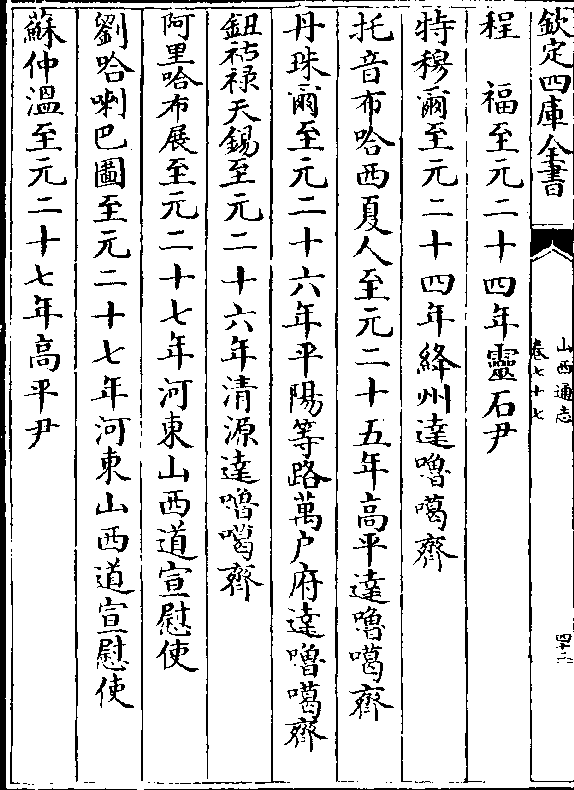 欽定四庫全書
山西通志
卷七十七
四十二
程　福至元二十四年靈石尹
特穆爾至元二十四年絳州達嚕噶齊
托音布哈西夏人至元二十五年高平達嚕噶齊
丹珠爾至元二十六年平陽等路萬户府達嚕噶齊
鈕祜禄天錫至元二十六年清源達嚕噶齊
阿里哈布展至元二十七年河東山西道宣慰使
劉哈喇巴圖至元二十七年河東山西道宣慰使
蘇仲溫至元二十七年高平尹